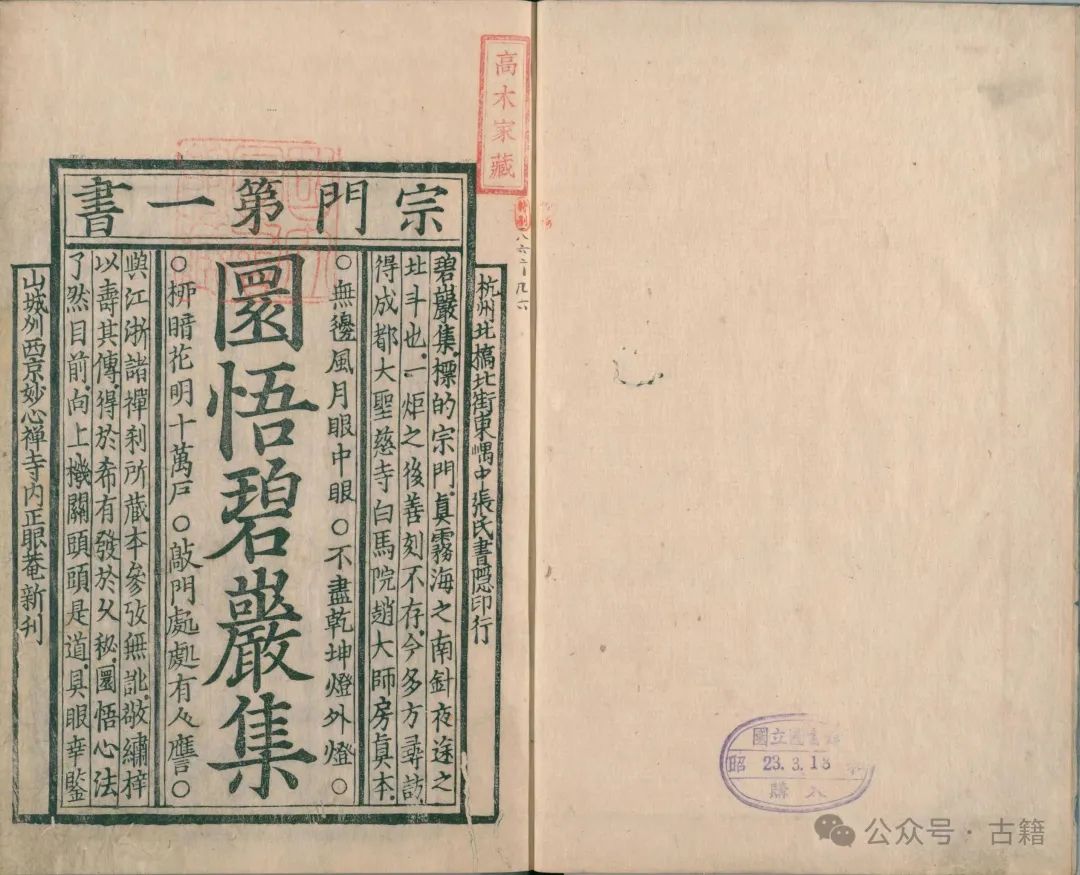 高木家藏
宗門第一書
杭州北橋北街東嵎中張氏書隱印行
碧巖集標的宗門眞霧海之南針夜途之
北斗也一炬之後善刻不存今多方尋訪
得成都大聖慈寺白馬院趙大師房眞本
○無邊風月眼中眼○不盡乾坤燈外燈○
圜悟碧巖集
○柳暗花明十萬戶○敲門處處有人譍○
與江浙諸禪刹所藏本參攷無訛敬繡梓
以壽其傳得於希有發於久秘圜悟心法
了然目前向上機關頭頭是道具眼幸鑒
山城州西京妙心禅寺内正眼菴新刊
國立國書
昭 23.3.18
購入
公众号·古籍